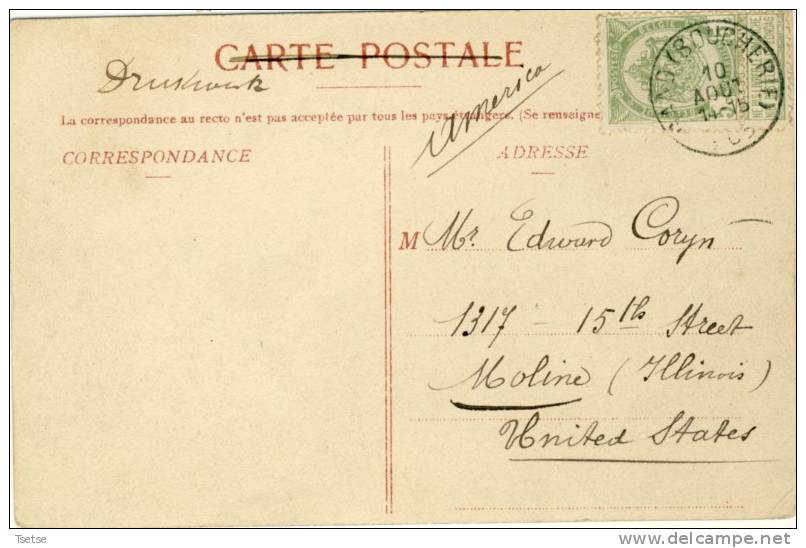 CARTE POSTALE
Drukwerk
America
La correspondance au recto n'est pas acceptée par tous les pays étrangers. (Se renseigne
CORRESPONDANCE
ADRESSE
BELGIE
GAND (BOUCHERIE)
10
AOUT
14-15
M Mr. Edward Coryn
1317 - 15th Street
Moline (Illinois)
United States
Tsetse
delcampe.net